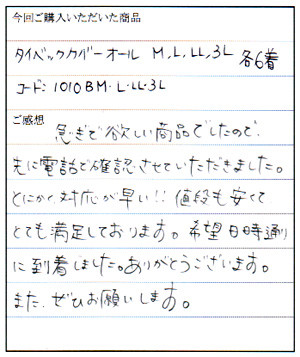 今回ご購入いただいた商品
タイベックカバーオール M,L,LL,3L 各6着
コード: 1010BM・L・LL・3L
ご感想
急ぎで欲しい商品でしたので、
先に電話で確認させていただきました。
とにかく対応が早い!! 値段も安くて
とても満足しております。希望日時通り
に到着しました。ありがとうございます。
また、ぜひお願いします。